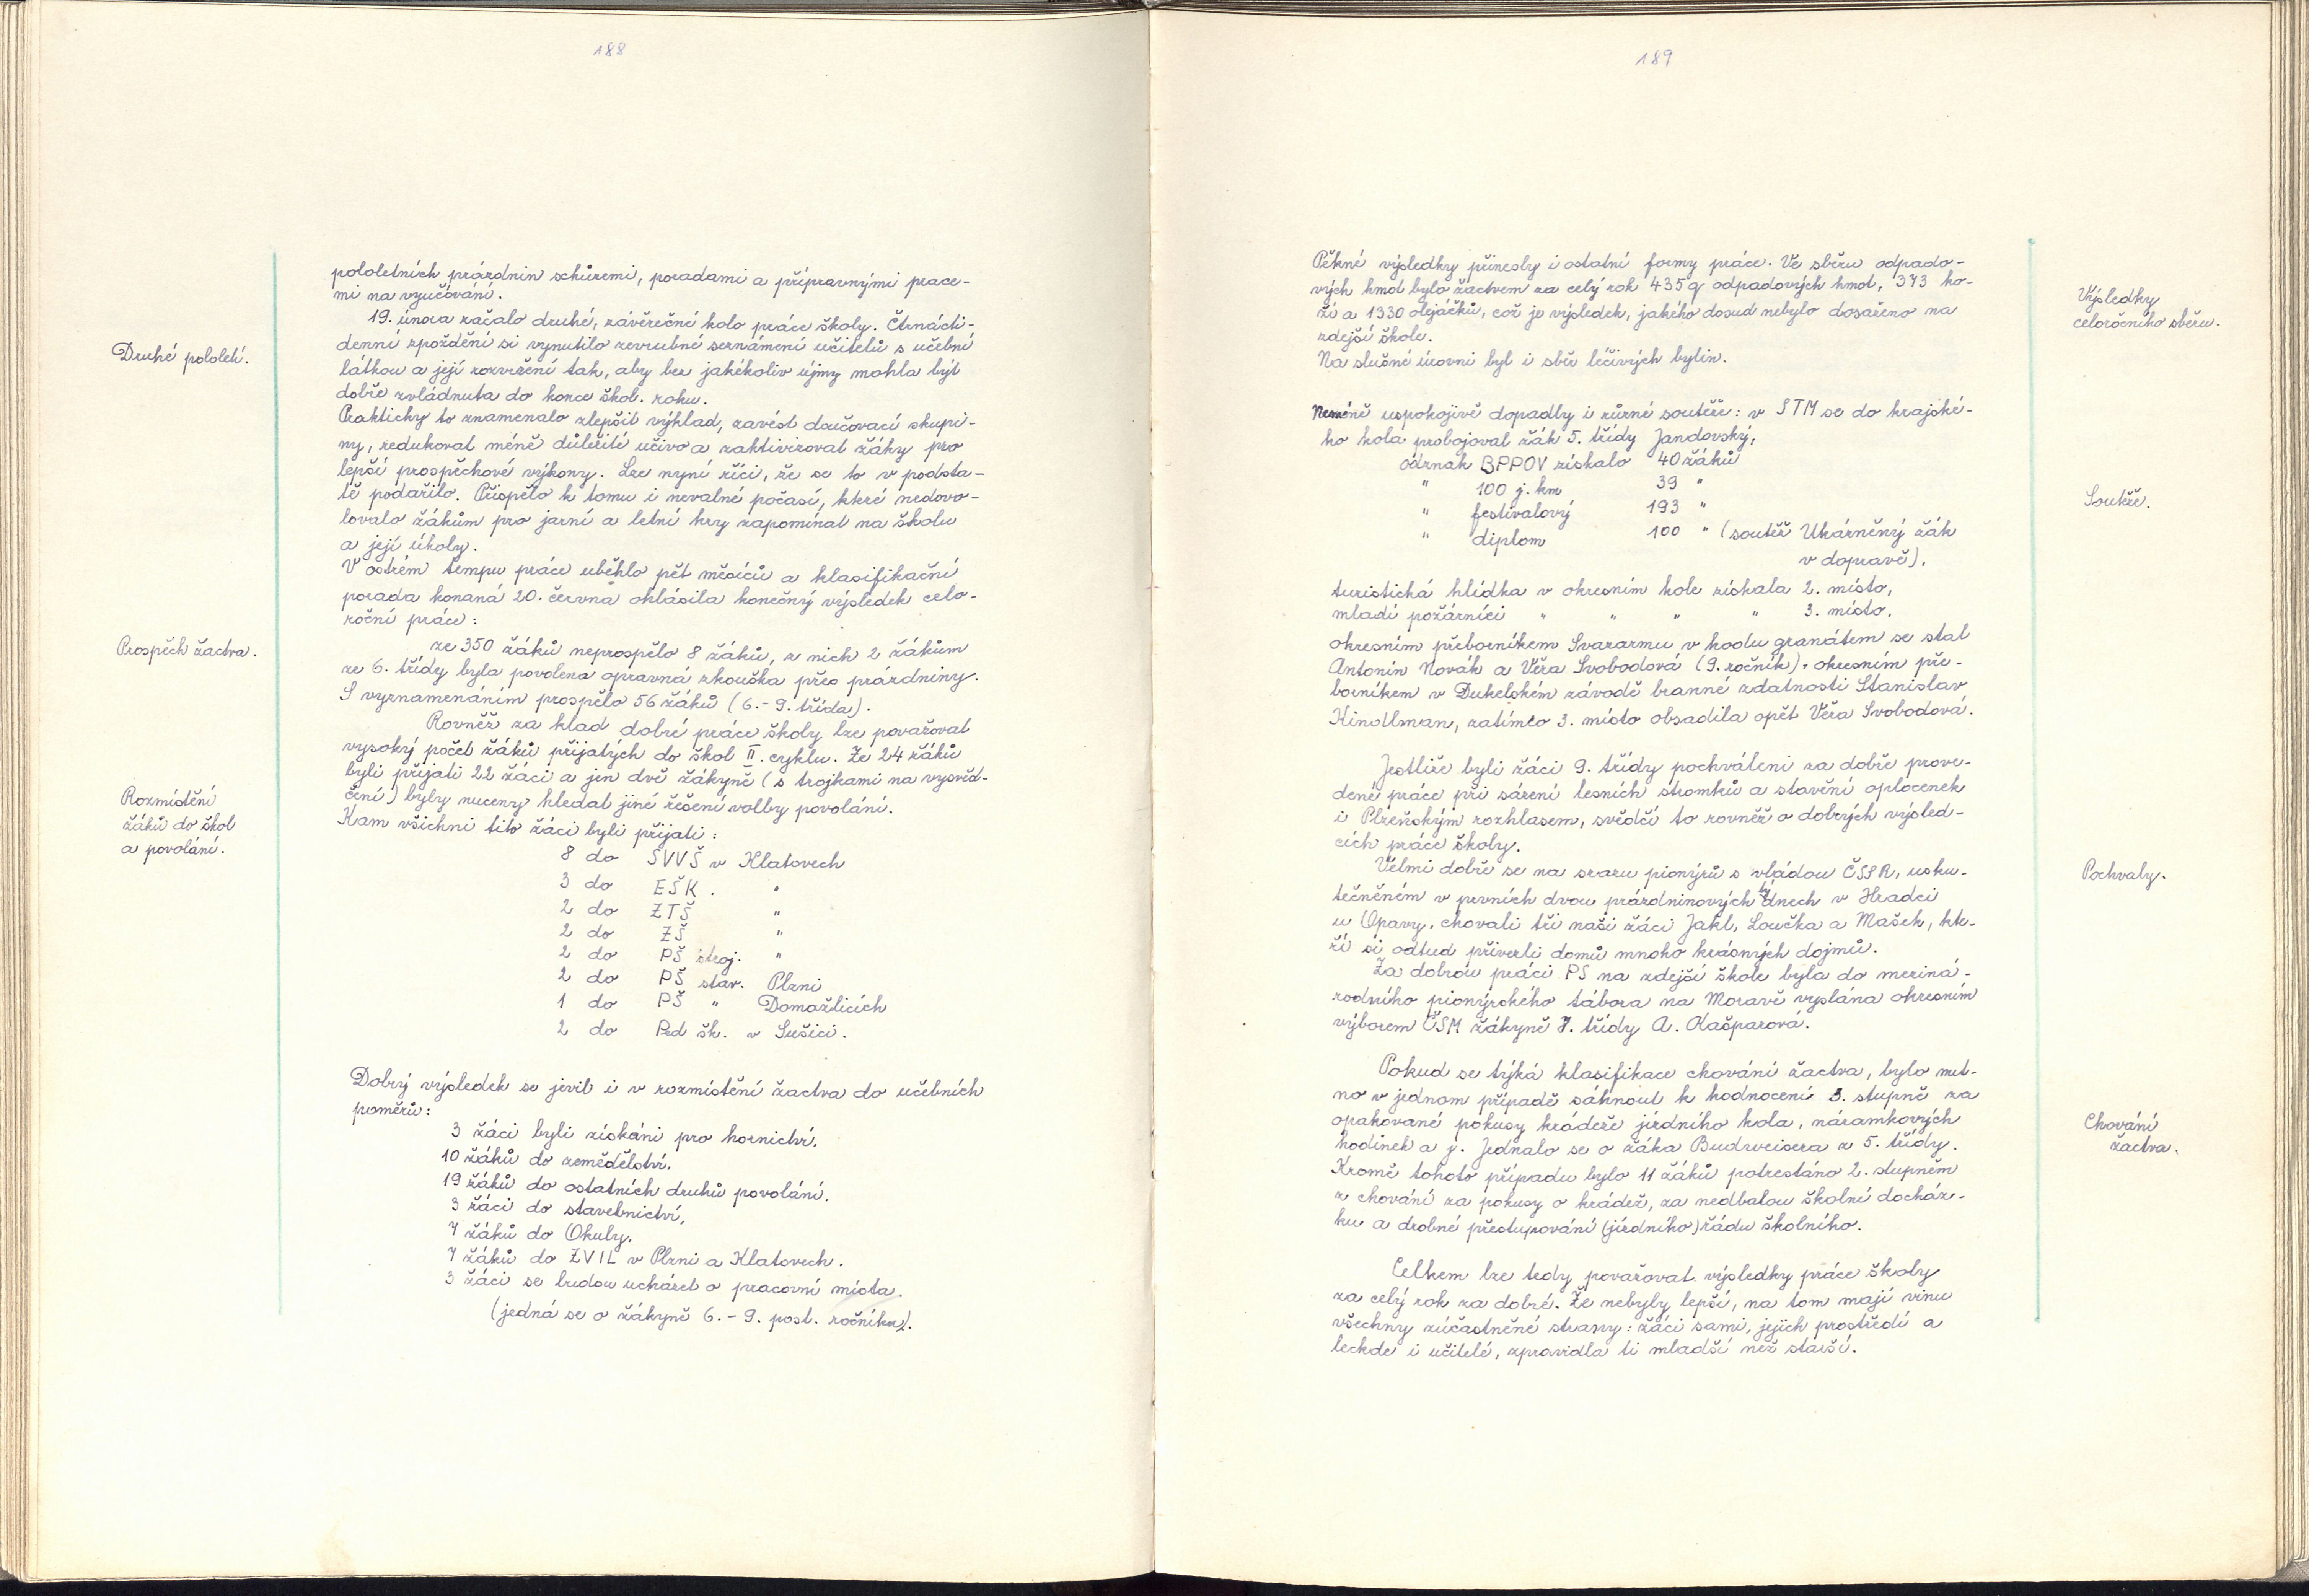 188
pololetních prázdnin schůzemi, poradami a přípravnými prace-
mi na vyučování.
19. února začalo druhé, závěrečné kolo práce školy. Čtrnácti-
denní zpoždění si vynutilo zevrubné seznámení učitelů s učební
Druhé pololetí.
látkou a její rozvržení tak, aby bez jakékoliv újmy mohla být
dobře zvládnuta do konce škol. roku.
Prakticky to znamenalo zlepšit výklad, zavést doučovací skupi-
ny, redukovat méně důležité učivo a zaktivizovat žáky pro
lepší prospěchové výkony. Lze nyní říci, že se to v podsta-
tě podařilo. Přispělo k tomu i nevalné počasí, kkré nedovo-
lovalo žákům pro jarní a letní hry zapomínat na školu
a její úkoly.
V ostrém tempu práce uběhlo pět měsíců a klasifikační
porada konaná 20. června ohlásila konečný výsledek celo-
roční práce:
Prospěch žactva.
ze 350 žáků neprospělo 8 žáků, z nich 2 žákům
ze 6. třídy byla povolena opravná zkouška přes prázdniny.
S vyznamenáním prospělo 56 žáků (6.-9. třída).
Rovněž za klad dobré práce školy lze považovat
vysoký počet žáků přijatých do škol II. cyklu. Ze 24 žáků
byli přijati 22 žáci a jen dvě žákyně (s trojkami na vysvěd-
čení) byly nuceny hledat jiné řešení volby povolání.
Rozmístění
žáků do škol
a povolání.
Kam všichni tito žáci byli přijati:
8 do SVVŠ v Klatovech
3 do EŠK. "
2 do ZTŠ "
2 do ZŠ "
2 do PŠ stroj. "
2 do PŠ stav. Plzni
1 do PŠ " Domažlicích
2 do Ped šk. v Sušici.
Dobrý výsledek se jevil i v rozmístění žactva do učebních
poměrů:
3 žáci byli získáni pro hornictví.
10 žáků do zemědělství.
19 žáků do ostatních druhů povolání.
3 žáci do stavebnictví,
7 žáků do Okuly.
7 žáků do ZVIL v Plzni a Klatovech.
3 žáci se budou ucházet o pracovní místa.
(jedná se o žákyně 6.-9. post. ročníku).
189
Pěkné výsledky přinesly i ostatní formy práce. Ve sběru odpado-
vých hmot bylo žactvem za celý rok 435 q odpadových hmot, 373 ko-
ží a 1330 olejáčků, což je výsledek, jakého dosud nebylo dosaženo na
zdejší škole.
Výsledky
celoročního sběru.
Na slušné úrovni byl i sběr léčivých bylin.
Neméně uspokojivě dopadly i různé soutěže: v STM se do krajské-
ho kola probojoval žák 5. třídy Jandovský,
odznak BPPOV získalo 40 žáků
" 100 j. km 39 "
" festivalový 193 "
Soutěže.
" diplom 100 " (soutěž Ukázněný žák
v dopravě).
turistická hlídka v okresním kole získala 2. místo,
mladí požárníci " " " " 3. místo.
okresním přeborníkem Svazarmu v hodu granátem se stal
Antonín Novák a Věra Svobodová (9. ročník), okresním pře-
borníkem v Dukelském závodě branné zdatnosti Stanislav
Kindlman, zatímco 3. místo obsadila opět Věra Svobodová.
Jestliže byli žáci 9. třídy pochváleni za dobře prove-
dené práce při sázení lesních stromků a stavění oplocenek
i Plzeňským rozhlasem, svědčí to rovněž o dobrých výsled-
cích práce školy.
Velmi dobře se na srazu pionýrů s vládou ČSSR, usku-
Pochvaly.
tečněném v prvních dvou prázdninových dnech v Hradci
u Opavy, chovali tři naši žáci Jakl, Loučka a Mašek, kte-
ří si odtud přivezli domů mnoho krásných dojmů.
Za dobrou práci PS na zdejší škole byla do meziná-
rodního pionýrského tábora na Moravě vyslána okresním
výborem ČSM žákyně 7. třídy A. Kašparová.
Pokud se týká klasifikace chování žactva, bylo nut-
no v jednom případě sáhnout k hodnocení 3. stupně za
opakované pokusy krádeže jízdního kola, náramkových
hodinek a j. Jednalo se o žáka Budweisera z 5. třídy.
Chování
žactva.
Kromě tohoto případu bylo 11 žáků potrestáno 2. stupněm
z chování za pokusy o krádež, za nedbalou školní docház-
ku a drobné přestupování (jízdního) řádu školního.
Celkem lze tedy považovat výsledky práce školy
za celý rok za dobré. Že nebyly lepší, na tom mají vinu
všechny zúčastněné strany: žáci sami, jejich prostředí a
leckde i učitelé, zpravidla ti mladší než starší.